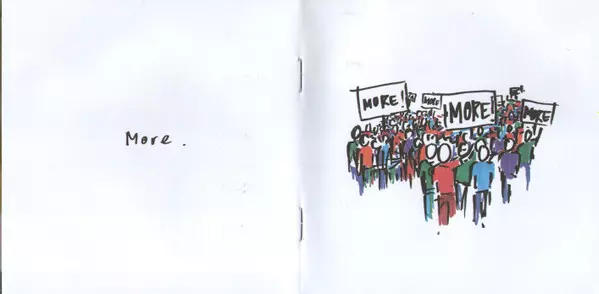 More.
MORE!
MORE
¡MORE!
MORE